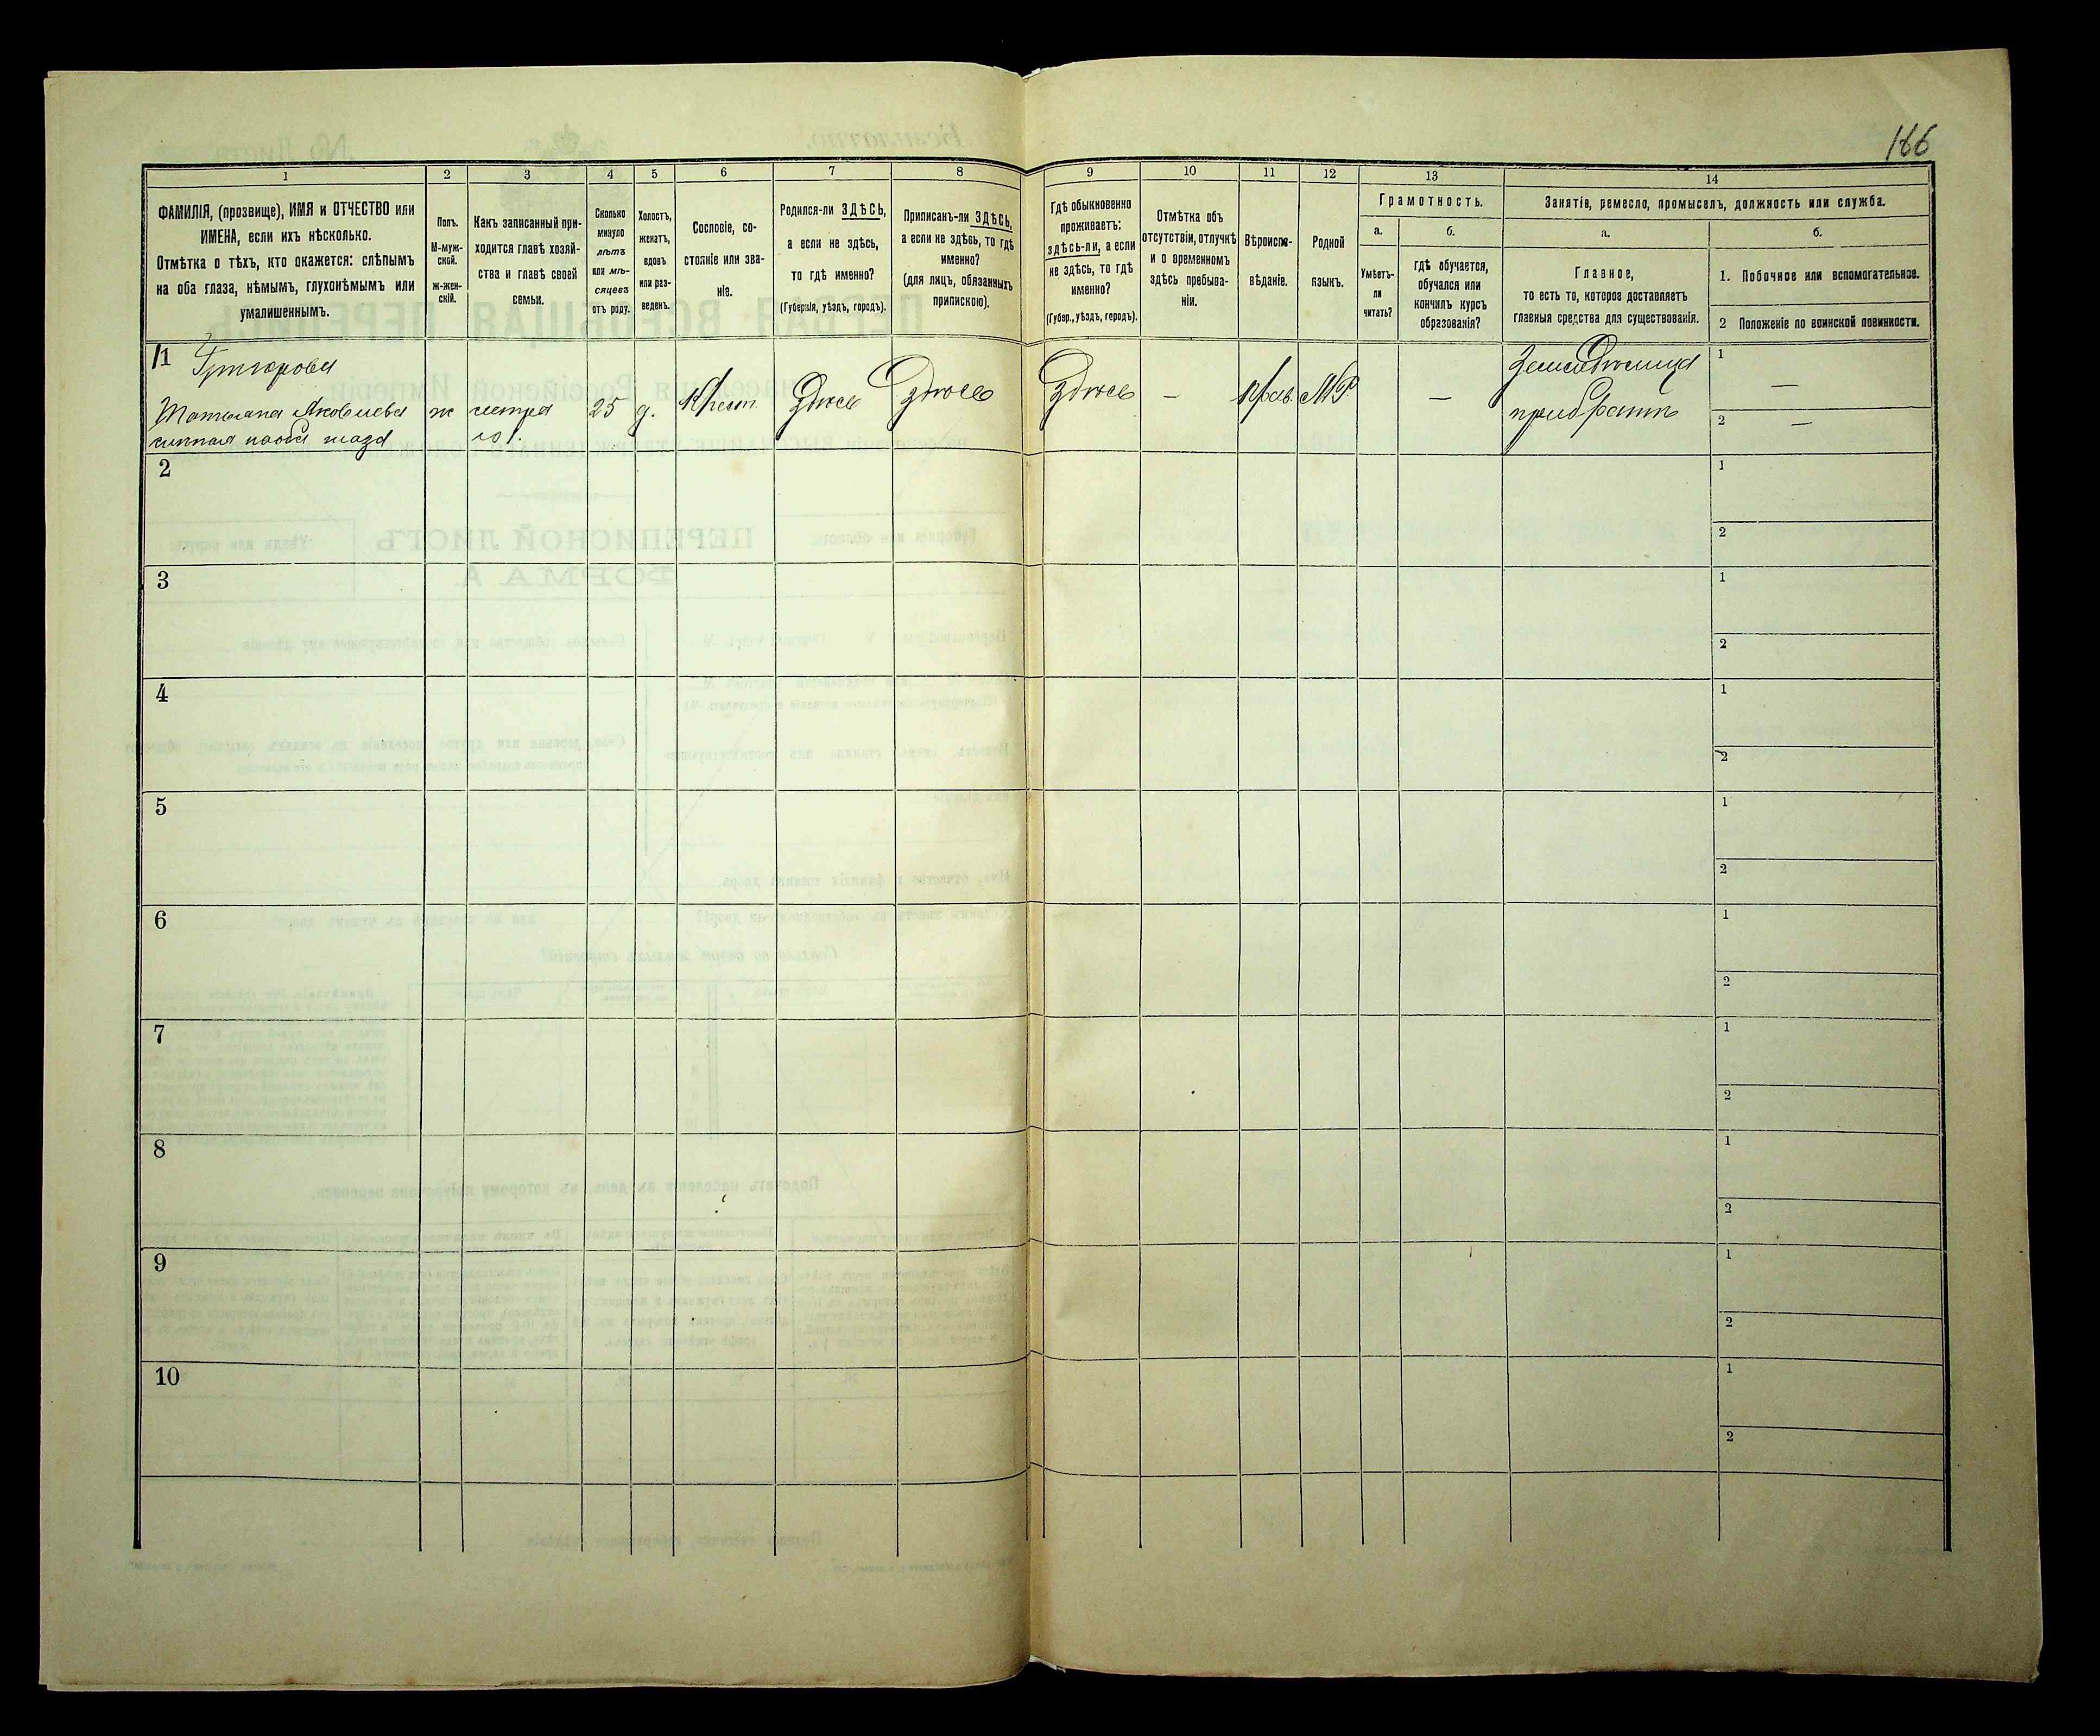 166
1
2
3
4
5
6
7
8
ФАМИЛІЯ, (прозвище), ИМЯ и ОТЧЕСТВО или
ИМЕНА, если ихъ нѣсколько.
Отмѣтка о тѣхъ, кто окажется: слѣпымъ
на оба глаза, нѣмымъ, глухонѣмымъ или
умалишеннымъ.
Полъ.
М-муж-
ской.
ж-жен-
скій.
Какъ записанный при-
ходится главѣ хозяй-
ства и главѣ своей
семьи.
Сколько
минуло
лѣтъ
или мѣ-
сяцевъ
отъ роду.
Холостъ,
женатъ,
вдовъ
или раз-
веденъ.
Сословіе, со-
стояніе или зва-
ніе.
Родился-ли ЗДѢСЬ,
а если не здѣсь,
то гдѣ именно?
(Губернія, уѣздъ, городъ).
Приписанъ-ли ЗДѢСЬ,
а если не здѣсь, то гдѣ
именно?
(для лицъ, обязанныхъ
припискою).
9
10
11
12
13
14
Гдѣ обыкновенно
проживаетъ:
здѣсь-ли, а если
не здѣсь, то гдѣ
именно?
(Губер., уѣздъ, городъ).
Отмѣтка объ
отсутствіи, отлучкѣ
и о временномъ
здѣсь пребыва-
ніи.
Вѣроиспо-
вѣданіе.
Родной
языкъ.
Грамотность.
а.
Умѣетъ-
ли
читать?
б.
гдѣ обучается,
обучался или
кончилъ курсъ
образованія?
Занятіе, ремесло, промыселъ, должность или служба.
а.
Главное,
то есть то, которое доставляетъ
главныя средства для существованія.
б.
1. Побочное или вспомогательное.
2 Положеніе по воинской повинности.
1 Григорова
Татьяна Яковлева
слѣпая на оба глаза
ж
сестра
25
д.
Крест.
Здѣсь
Здѣсь
Здѣсь
—
Прав.
М.Р.
—
при братѣ
1
—
2
—
2
1
2
3
1
2
4
1
2
5
1
2
6
1
2
7
1
2
8
1
2
9
1
2
10
1
2